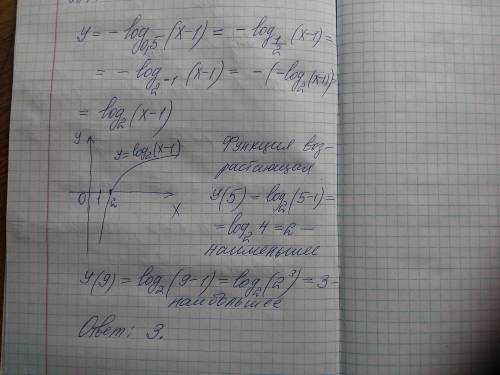 y = -log₀,₅(x-1) = -log_{1/2}(x-1) =
= -log_{2⁻¹}(x-1) = -(-log₂(x-1)) =
= log₂(x-1)
y
y=log₂(x-1)
0 1 2 x
Функция воз-
растающая
y(5) = log₂(5-1) =
= log₂4 = 2 -
наименьшее
y(9) = log₂(9-1) = log₂(2³) = 3 -
наибольшее
Ответ: 3.